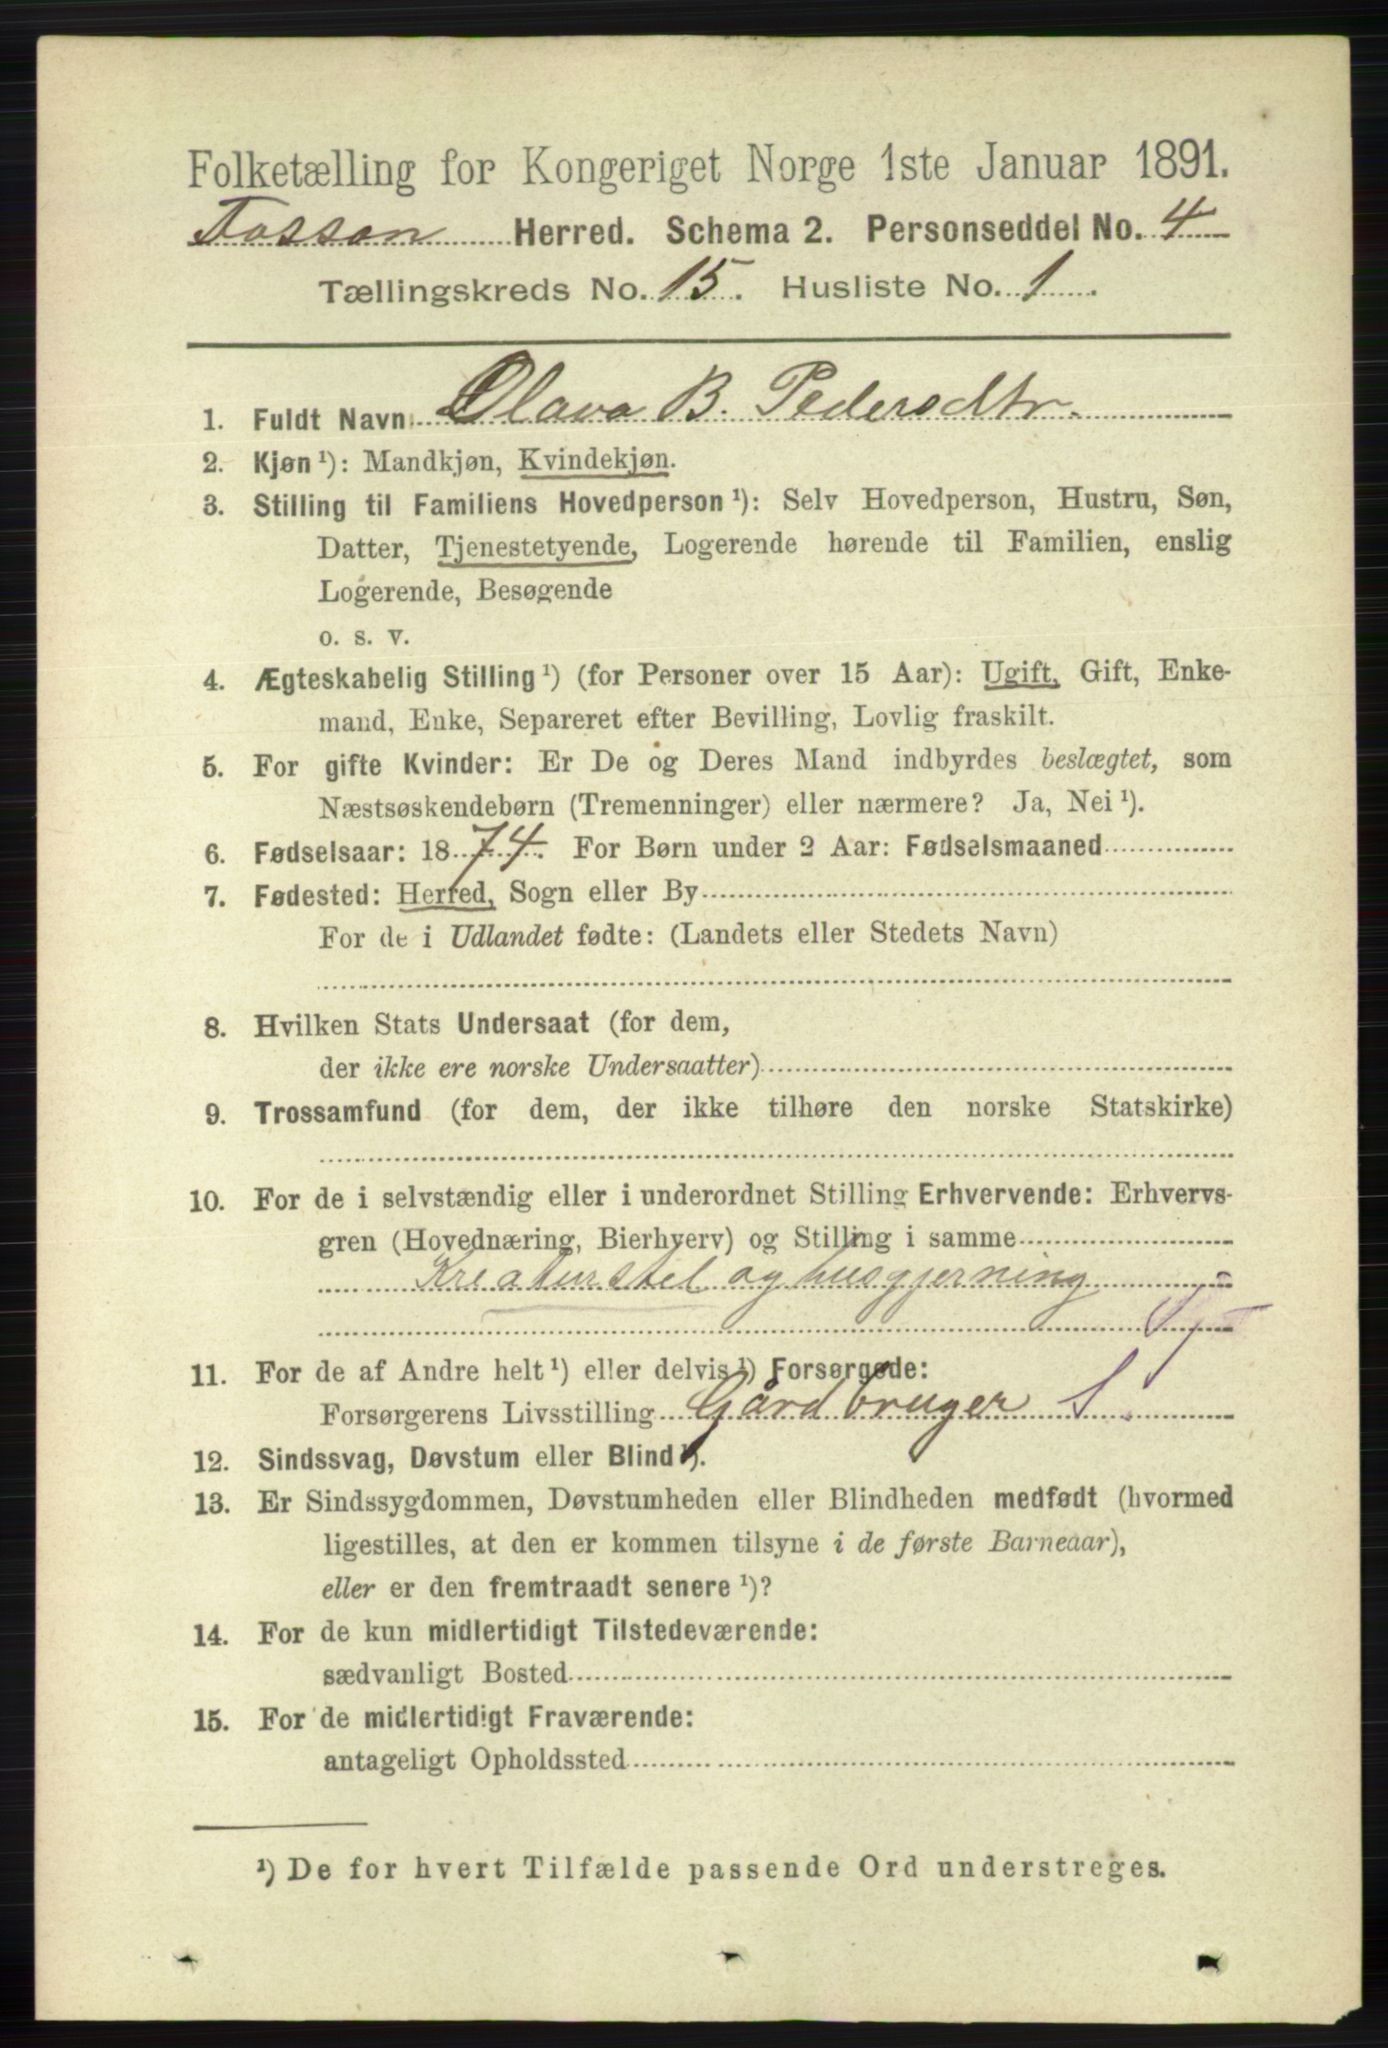 Folketælling for Kongeriget Norge 1ste Januar 1891.
Fosson Herred. Schema 2. Personseddel No. 4
Tællingskreds No. 15. Husliste No. 1.
1. Fuldt Navn Olava B. Pedersdtr.
2. Kjøn ¹): Mandkjøn, Kvindekjøn.
3. Stilling til Familiens Hovedperson ¹): Selv Hovedperson, Hustru, Søn,
Datter, Tjenestetyende, Logerende hørende til Familien, enslig
Logerende, Besøgende
o. s. v.
4. Ægteskabelig Stilling ¹) (for Personer over 15 Aar): Ugift, Gift, Enke-
mand, Enke, Separeret efter Bevilling, Lovlig fraskilt.
5. For gifte Kvinder: Er De og Deres Mand indbyrdes beslægtet, som
Næstsøskendebørn (Tremenninger) eller nærmere? Ja, Nei ¹).
6. Fødselsaar: 1874. For Børn under 2 Aar: Fødselsmaaned
7. Fødested: Herred, Sogn eller By
For de i Udlandet fødte: (Landets eller Stedets Navn)
8. Hvilken Stats Undersaat (for dem,
der ikke ere norske Undersaatter)
9. Trossamfund (for dem, der ikke tilhøre den norske Statskirke)
10. For de i selvstændig eller i underordnet Stilling Erhvervende: Erhvervs-
gren (Hovednæring, Bierhverv) og Stilling i samme
Kreaturstel og husgjerning
11. For de af Andre helt ¹) eller delvis ¹) Forsørgede:
Forsørgerens Livsstilling Gårdbruger S.
12. Sindssvag, Døvstum eller Blind ¹).
13. Er Sindssygdommen, Døvstumheden eller Blindheden medfødt (hvormed
ligestilles, at den er kommen tilsyne i de første Barneaar),
eller er den fremtraadt senere ¹)?
14. For de kun midlertidigt Tilstedeværende:
sædvanligt Bosted
15. For de midlertidigt Fraværende:
antageligt Opholdssted
¹) De for hvert Tilfælde passende Ord understreges.